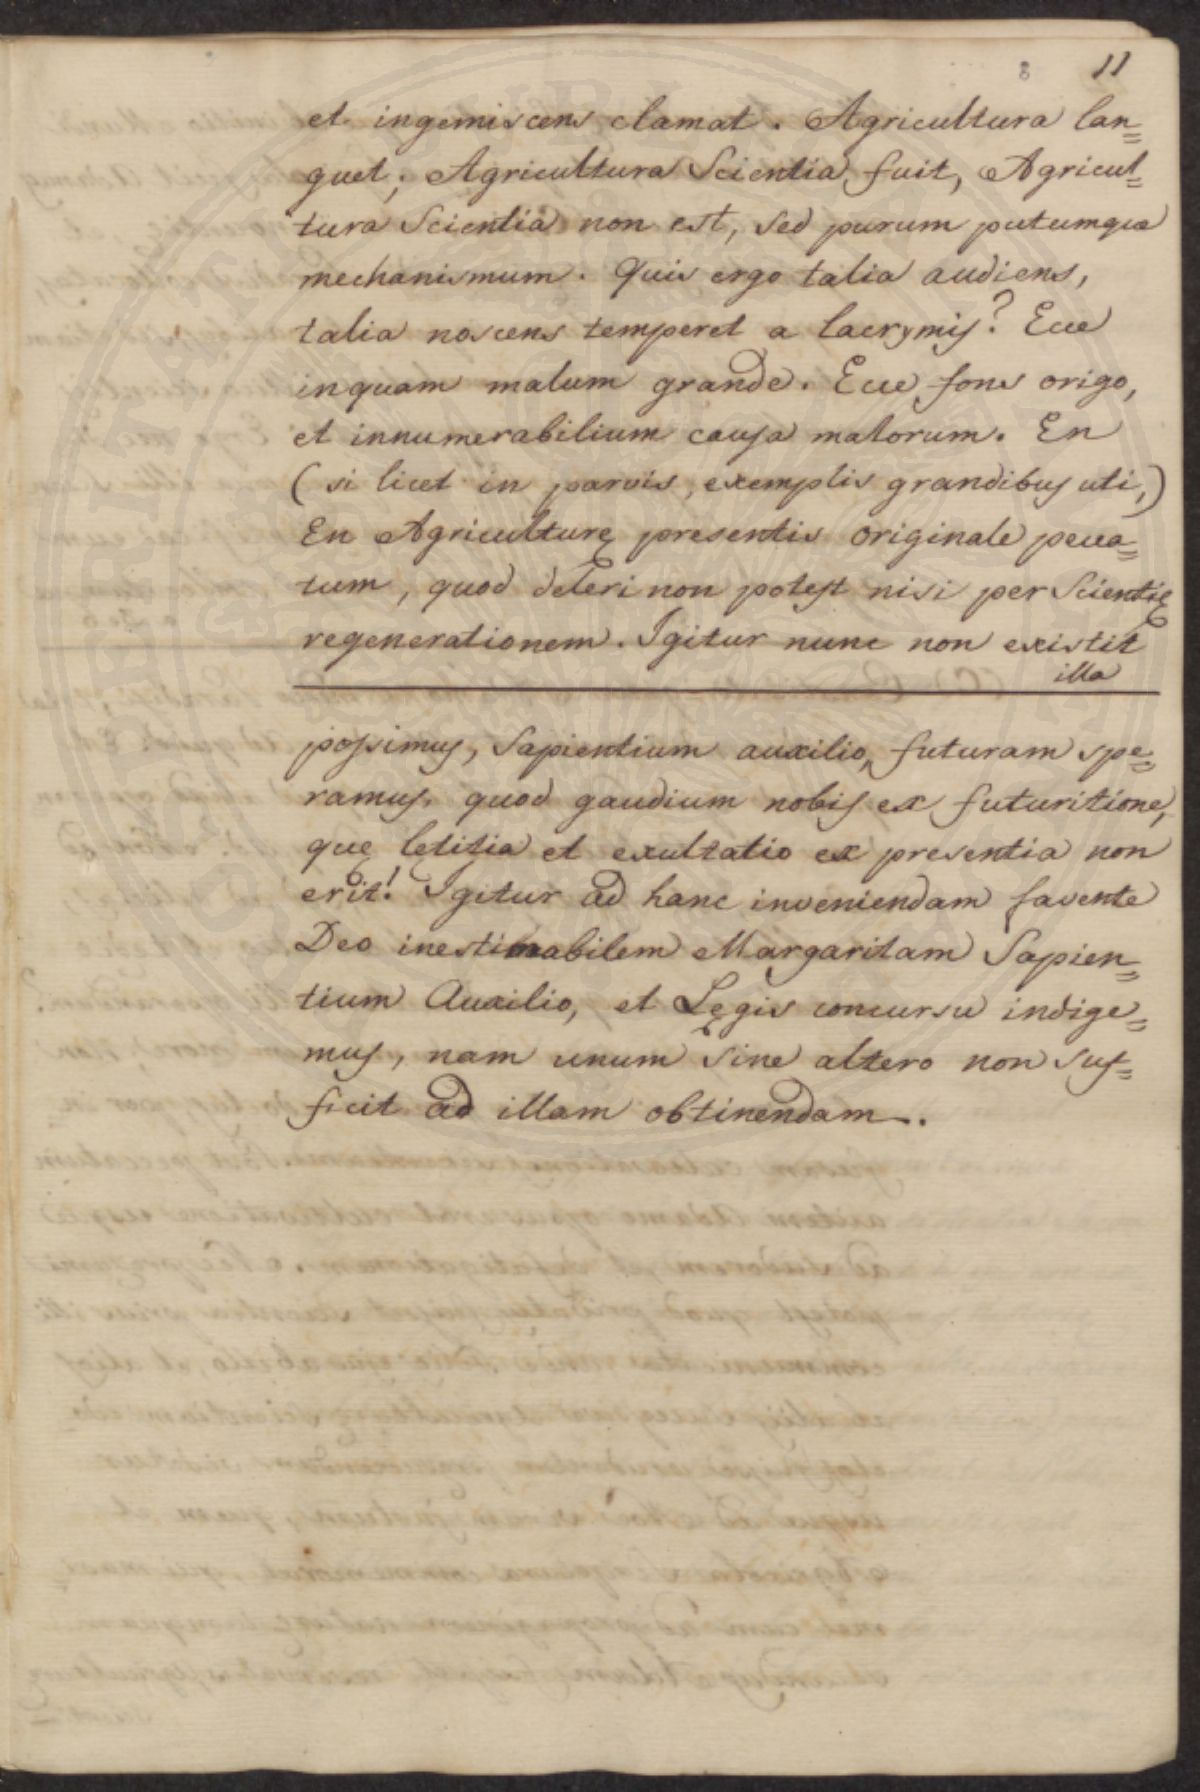 8 11
et ingemiscens clamat. Agricultura lan=
guet; Agricultura Scientia fuit, Agricul=
tura Scientia non est, sed purum putumque
mechanismum. Quis ergo talia audiens,
talia noscens temperet a lacrymis? Ecce
inquam malum grande. Ecce fons origo,
et innumerabilium causa malorum. En
(si licet in parvis, exemplis grandibus uti,)
En Agriculturę presentis originale pecca=
tum, quod deleri non potest nisi per Scientię
regenerationem. Igitur nunc non existit
illa
possimus, Sapientium auxilio, futuram spe=
ramus, quod gaudium nobis ex futuritione,
quę letitia et exultatio ex presentia non
erit! Igitur ad hanc inveniendam favente
Deo inestimabilem Margaritam Sapien=
tium Auxilio, et Legis concursu indige=
mus, nam unum sine altero non suf=
ficit ad illam obtinendam.